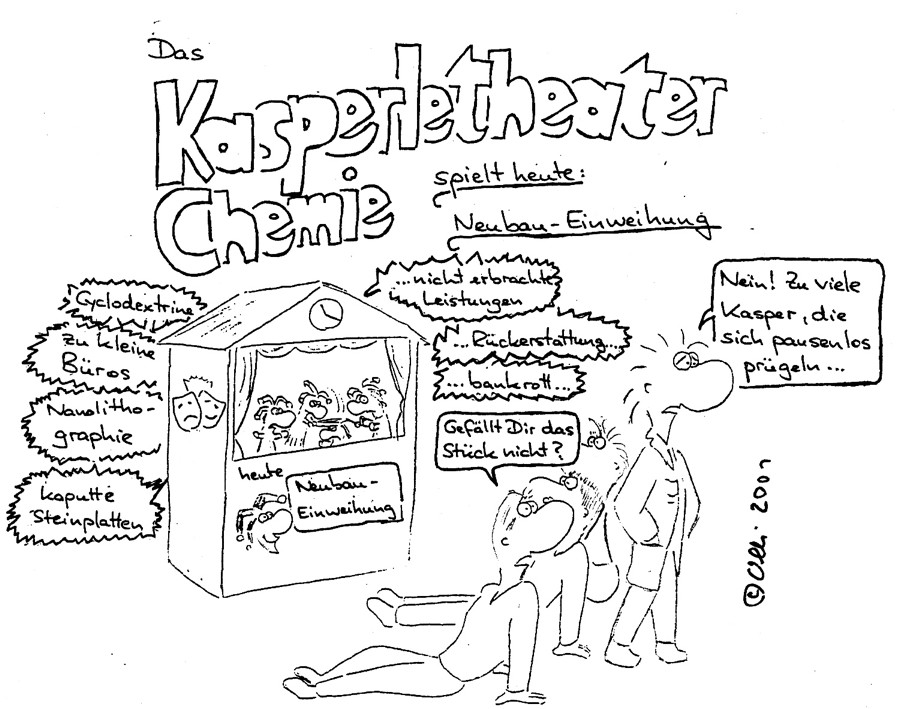 Das
Kasperletheater
Chemie
spielt heute:
Neubau-Einweihung
Cyclodextrine
zu kleine
Büros
Nanolitho-
graphie
kaputte
Steinplatten
...nicht erbrachte
Leistungen
...Rückerstattung...
...bankrott...
Nein! Zu viele
Kasper, die
sich pausenlos
prügeln...
Gefällt Dir das
Stück nicht?
heute
Neubau-
Einweihung
© Ulli. 2001